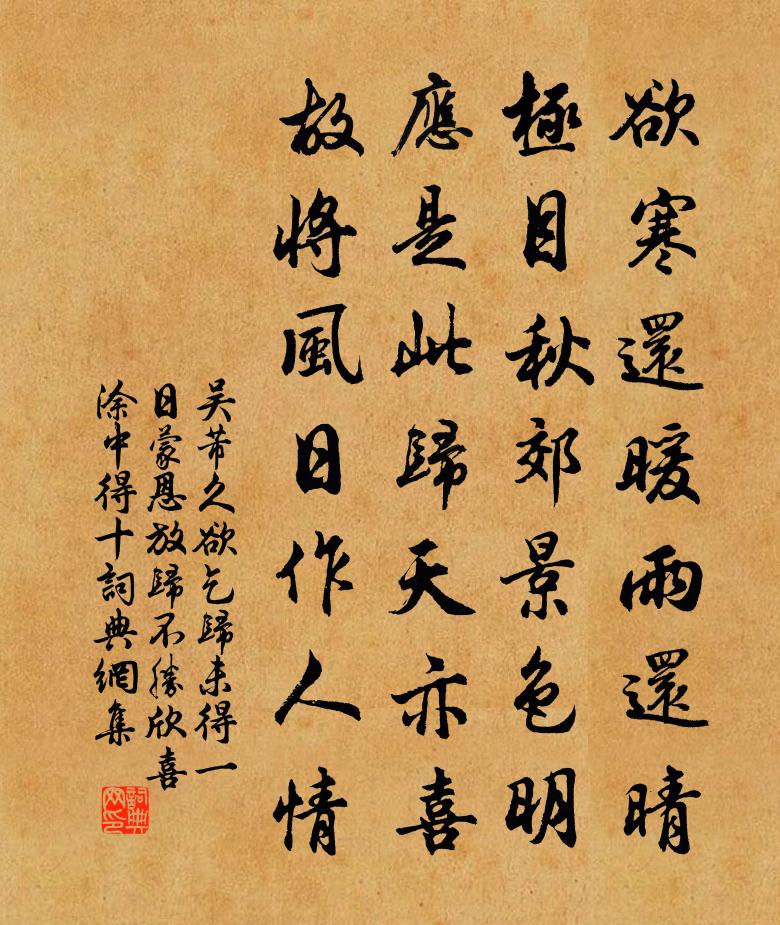 欲寒還暖雨還晴
極目秋郊景色明
應是此歸天亦喜
故將風日作人情
吴芾久欲乞歸未得一
日蒙恩放歸不勝欣喜
涂中得十詞典網集
詞典
网印